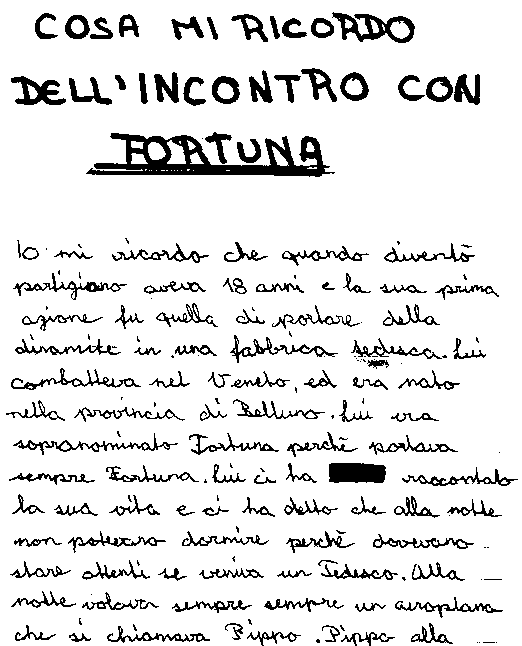 COSA MI RICORDO
DELL'INCONTRO CON
FORTUNA
Io mi ricordo che quando diventò
partigiano aveva 18 anni e la sua prima
azione fu quella di portare della
dinamite in una fabbrica tedesca. Lui
combatteva nel Veneto, ed era nato
nella provincia di Belluno. Lui era
sopranominato Fortuna perchè portava
sempre Fortuna. Lui ci ha raccontato
la sua vita e ci ha detto che alla notte
non potevano dormire perchè dovevano
stare attenti se veniva un Tedesco. Alla
notte volava sempre sempre un aroplano
che si chiamava Pippo. Pippo alla